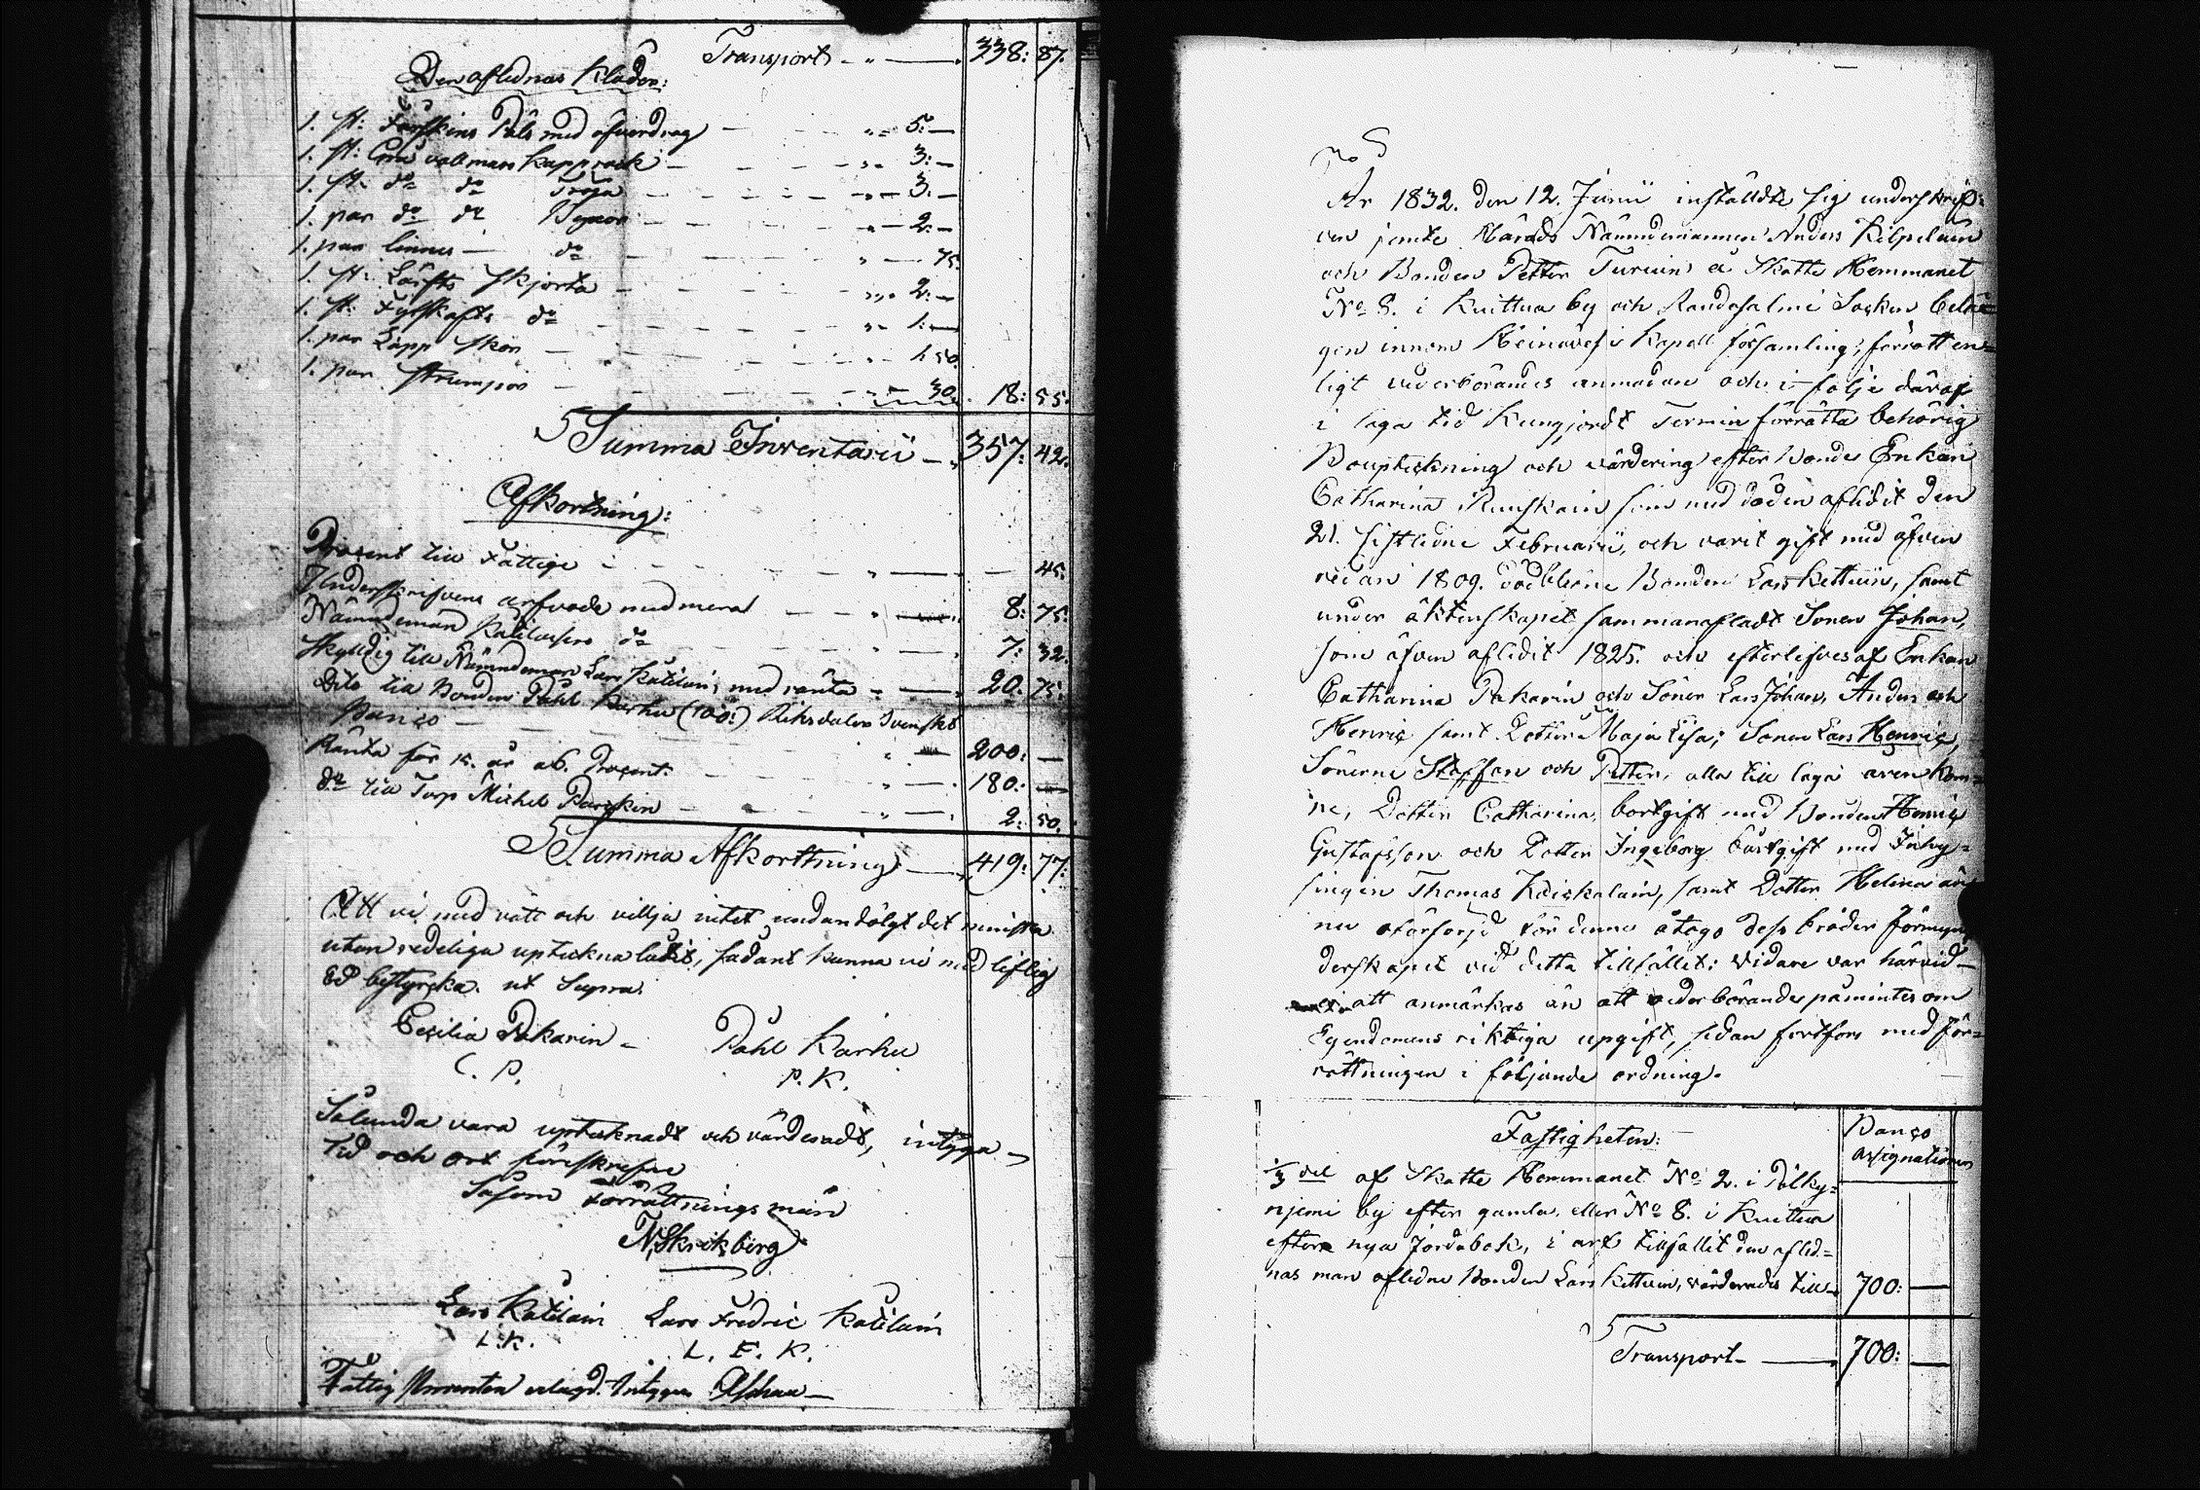 Transport 338: 87.
Den aflednas Kläder:
1. st: Fårskins Päls med öfverdrag 5:—
1. st: Grå vallmars Kapprock 3:—
1. st: do do Tröja 3:—
1. par do do Byxor 2:—
1. par linne do 75.
1. st: Lärfts Skjorta 2:—
1. st: do 1:—
1. par Lapp Skor 1. 50.
1. par Strumpor 30. 18: 55.
Summa Inventarii 357: 42.
Afkortning:
Procent till Fattige 45.
Underskrifvens arfvode med mera 8: 75.
Nämndeman Katilaisens do 7: 32.
Skyldig till Nämndeman Lars Katilain med ränta 20: 75.
Dito till Bonden Påhl Karhu (100:) Riksdaler Svenskt
Banco 200: —
Ränta för 15. år a 6. Procent. 180: —
do till Torp Michel 2: 50.
Summa Afkorttning 419: 77.
Att vi med vett och villja intet undandölgt det minsta
utan redeliga uptekna låtit, sådant kunna vi med liflig
Ed bestyrcka. ut Supra.
Cecilia Pakarin Påhl Karhu
C. P. P. K.
Sålunda vara upteknadt och värderadt, intyga
tid och ort föreskrefne
Såsom Förrättningsmän
Lars Katilain Lars Fredric Katilain
L. K. L. F. K.
Fattig Procenten erlagd. Intygar
No 5
År 1832. den 12. Junii inställdte sig underskrif-
ven jemte Härads Nämndemannen Anders Kilpelain
och Bonden Petter Turuin å Skatte Hemmanet
No 8. i Knittua by och Randasalmi Socken belä-
gen innom Heinävesi Kapell församling, för att en-
ligt vederbörandes anmodan och i följe däraf
i laga tid Kungjordt Termin förrätta behörig
Boupteckning och värdering efter Bonde Enkan
Catharina som med döden aflidit den
21. sistledne Februarii, och varit gift med äfven
redan 1809. dödblefne Bonden Lars Kettuin, samt
under äktenskapet sammanafladt Sonen Johan,
som äfven aflidit 1825. och efterlefves af Enkan
Catharina Pakarin och Söner Lars Johan, Anders och
Henric samt Dotter Maja Lisa; Sonen Lars Henric,
Sönerne Staffan och Petter, alla till laga åren kom-
ne, Dotter Catharina, bortgift med Bonden Henric
Gustafsson och Dotter Ingeborg bortgift med Inhy-
singen Thomas Koiskalain, samt Dotter Helena än-
nu oförsörjd för denne åtogs dess bröder förmyn-
derskapet vid detta tillfället; vidare var härvid
ei att anmärkas än att vederbörande påmintes om
Egendomens riktiga upgift, sedan fortfors med för-
rättningen i följande ordning.
Fastigheten: Banco
Assignationer
1/3 del af Skatte Hemmanet No 2. i Pölky-
njemi by efter gamla, eller No 8. i Knittua
efter nya Jordabok, i arf tillfallit den afled-
nas man afledne Bonden Lars Kettuin, värderades till 700: —
Transport 700: —